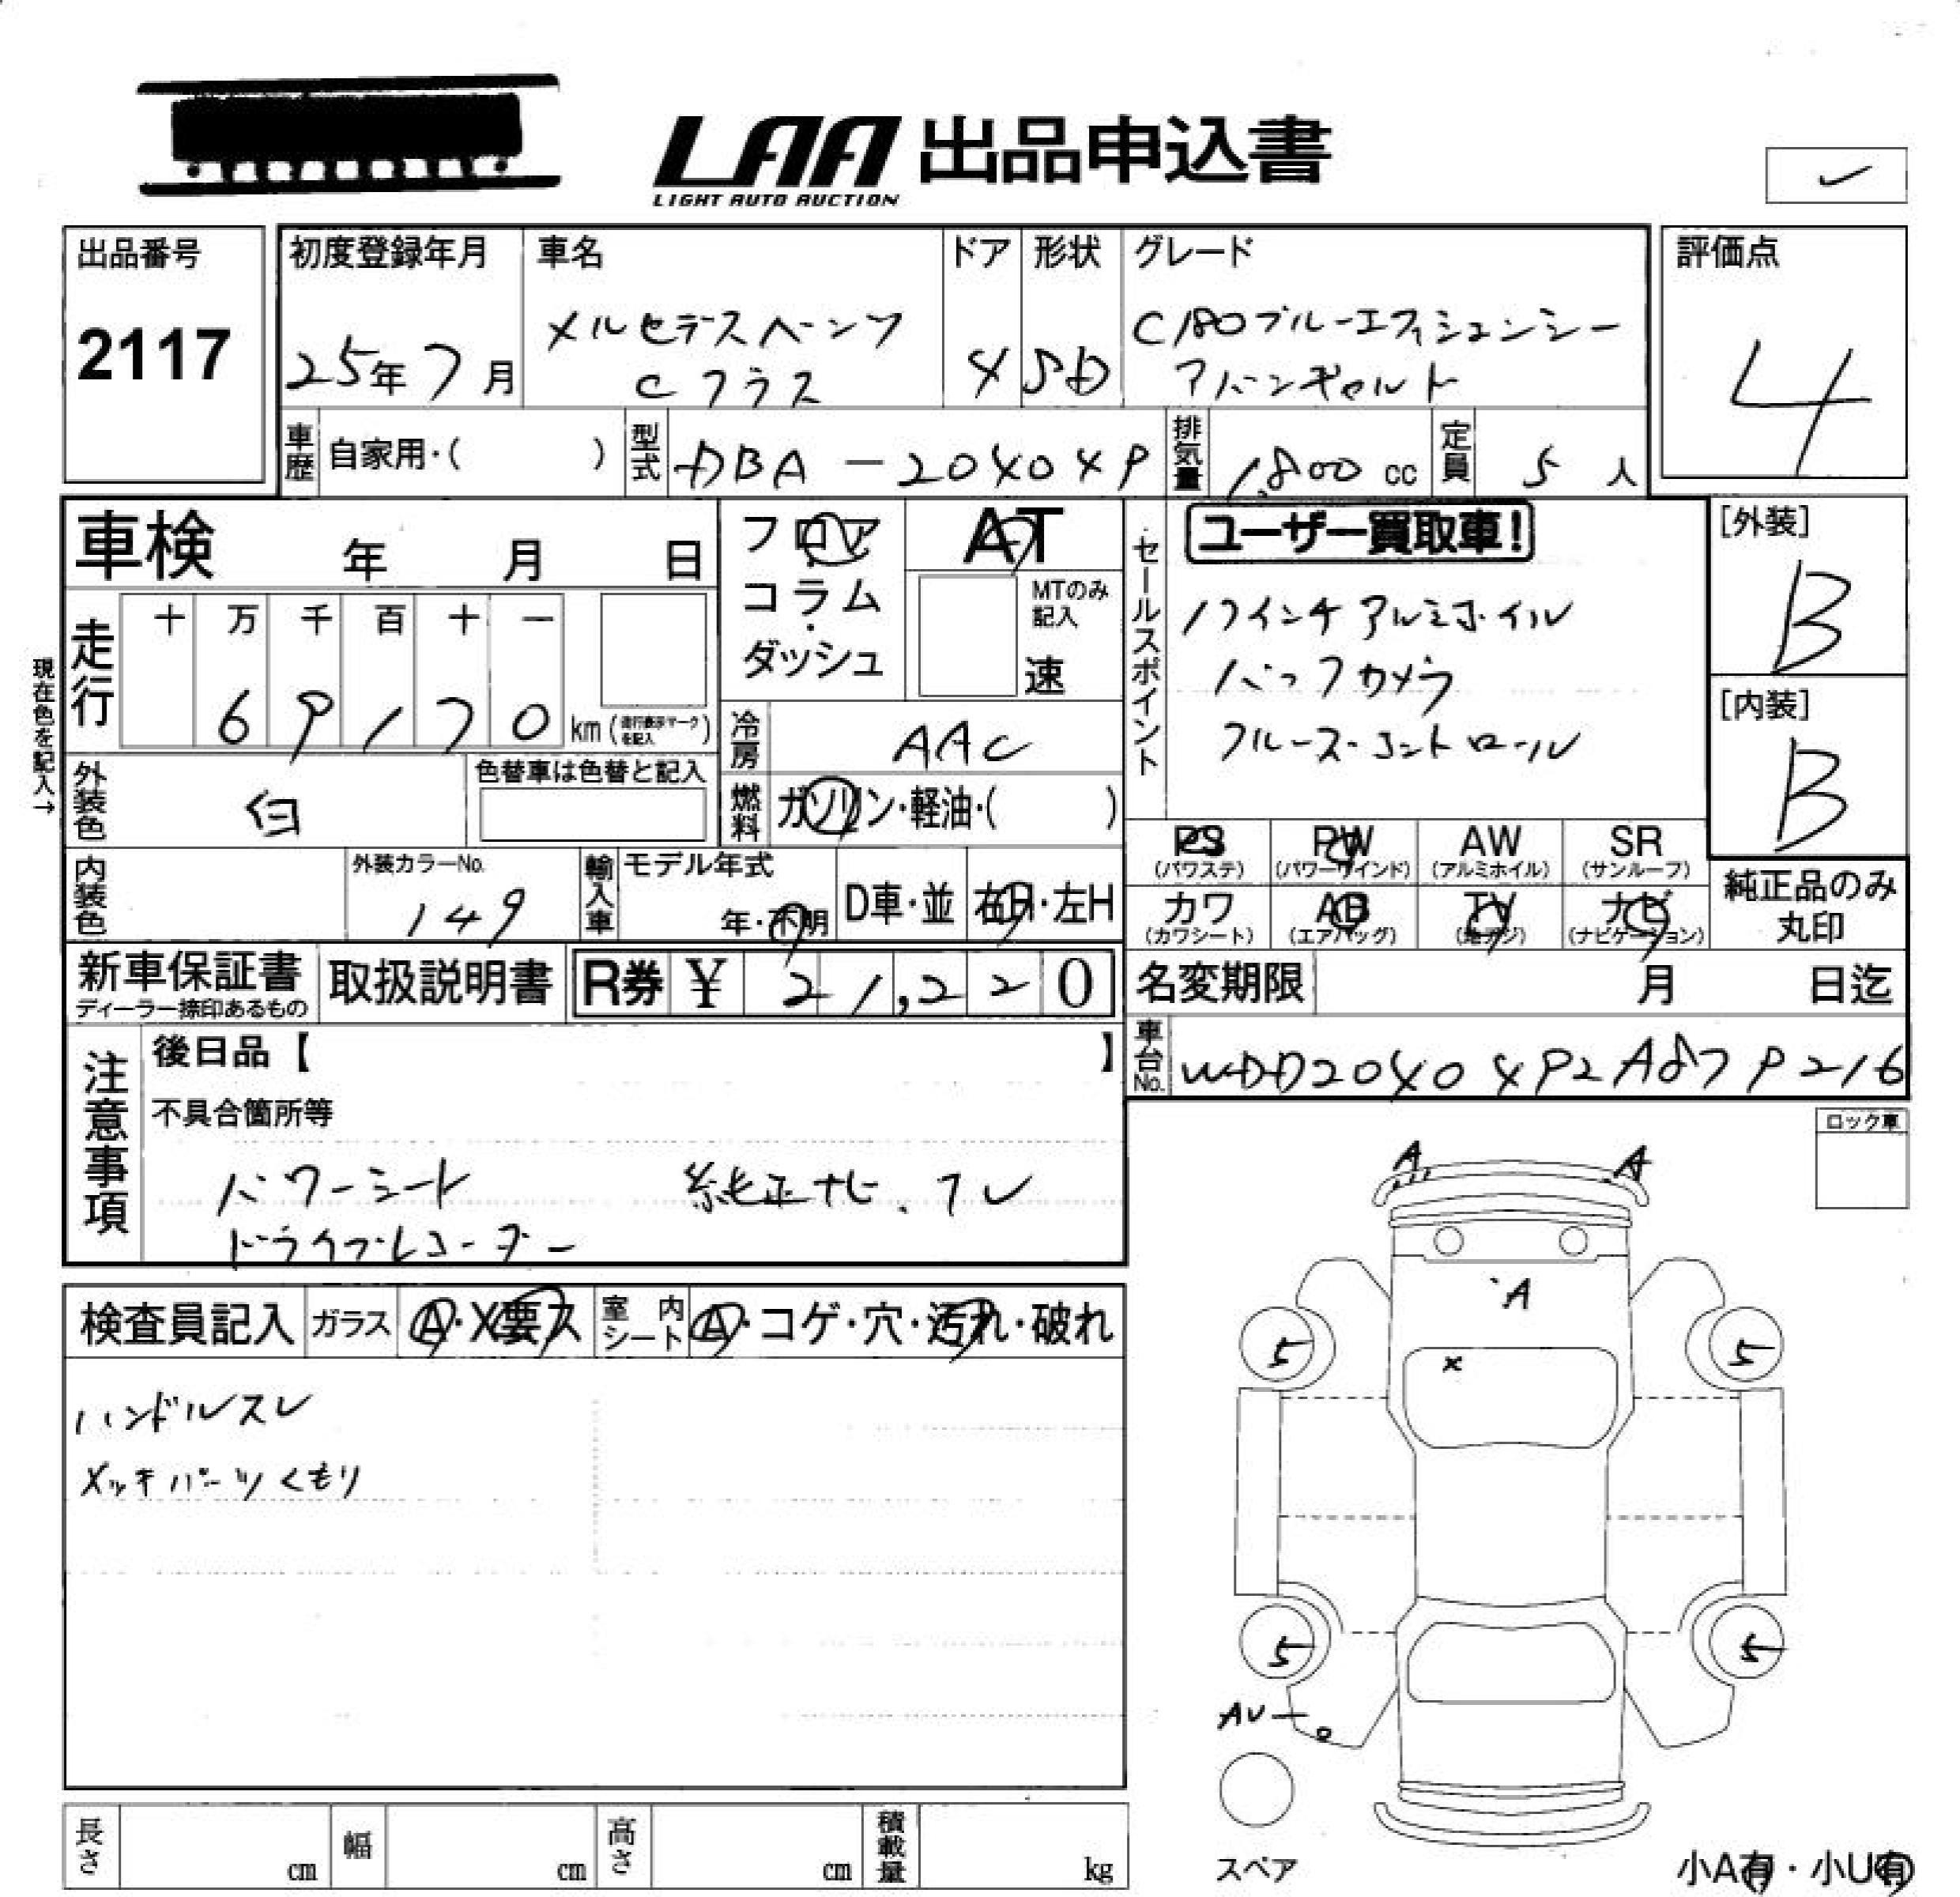 LAA 出品申込書
LIGHT AUTO AUCTION
出品番号
2117
初度登録年月
25年7月
車名
メルセデスベンツ
Cクラス
ドア
4
形状
SD
グレード
C180ブルーエフィシェンシー
アバンギャルド
評価点
4
車歴
自家用・( )
型式
DBA-204049
排気量
1,800 cc
定員
5 人
車検 年 月 日
フロア
・
コラム
・
ダッシュ
AT
MTのみ
記入
速
セールスポイント
ユーザー買取車!
17インチアルミホイル
バックカメラ
クルーズコントロール
[外装]
B
[内装]
B
現在色を記入→
走行
十 万 千 百 十 一
69170 km(走行表示マークを記入)
冷房
AAC
外装色
白
色替車は色替と記入
燃料
ガソリン・軽油・( )
PS
(パワステ)
PW
(パワーウインド)
AW
(アルミホイル)
SR
(サンルーフ)
内装色
外装カラーNo.
149
輸入車
モデル年式
年・不明
D車・並
右H・左H
カワ
(カワシート)
AB
(エアバッグ)
TV
(地デジ)
ナビ
(ナビゲーション)
純正品のみ
丸印
新車保証書
ディーラー捺印あるもの
取扱説明書
R券 ¥ 21,220
名変期限 月 日迄
車台No.
WDD2040492A879216
注意事項
後日品【 】
不具合箇所等
パワーシート 純正ナビ、テレ
ドライブレコーダー
ロック車
検査員記入
ガラス
A・X要ス
室内シート
A・コゲ・穴・汚れ・破れ
ハンドルスレ
メッキパーツくもり
A A
A
X
5 5
5 5
AU
スペア
長さ cm
幅 cm
高さ cm
積載量 kg
小A有・小U有